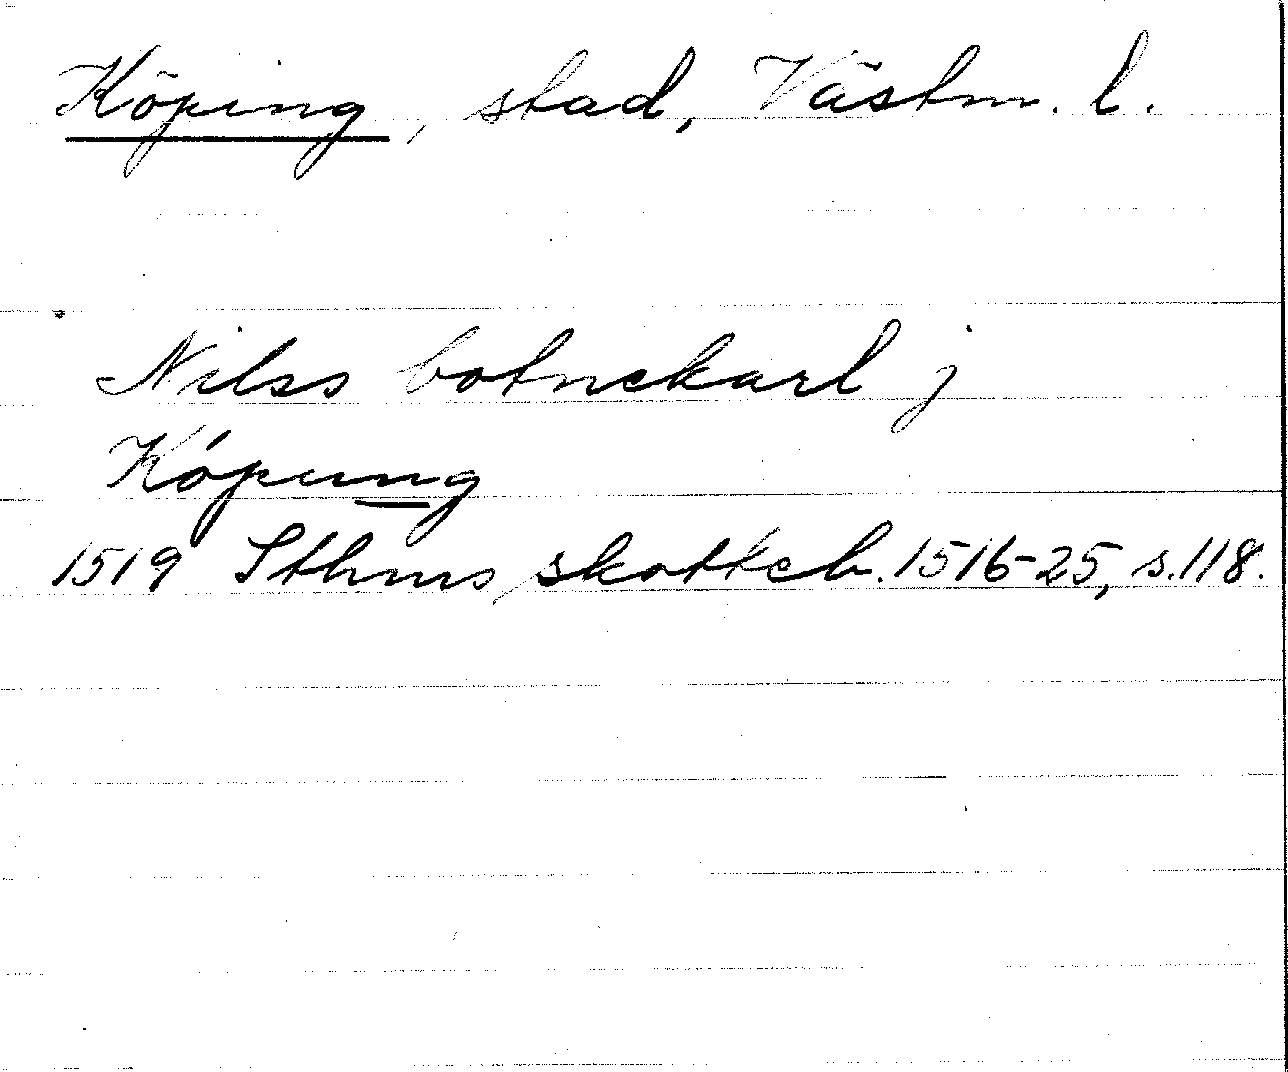 Köping, stad, Västm. l.
Nilss botnekarl j
Köpung
1519 Sthms skotteb. 1516-25, s. 118.